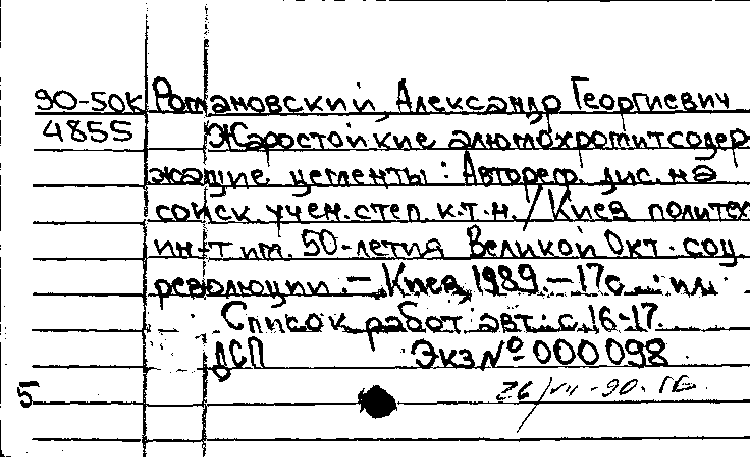 90-50к Романовский, Александр Георгиевич
4855 Жаростойкие алюмохромитсодер
жащие цементы : Автореф. дис. на
соиск. учен. степ. к.т.н. / Киев. политех
ин-т им. 50-летия Великой Окт. соц.
революции. — Киев, 1989. — 17с. : ил.
Список работ авт.: с. 16-17.
ДСП Экз № 000098
5 26/VII-90.